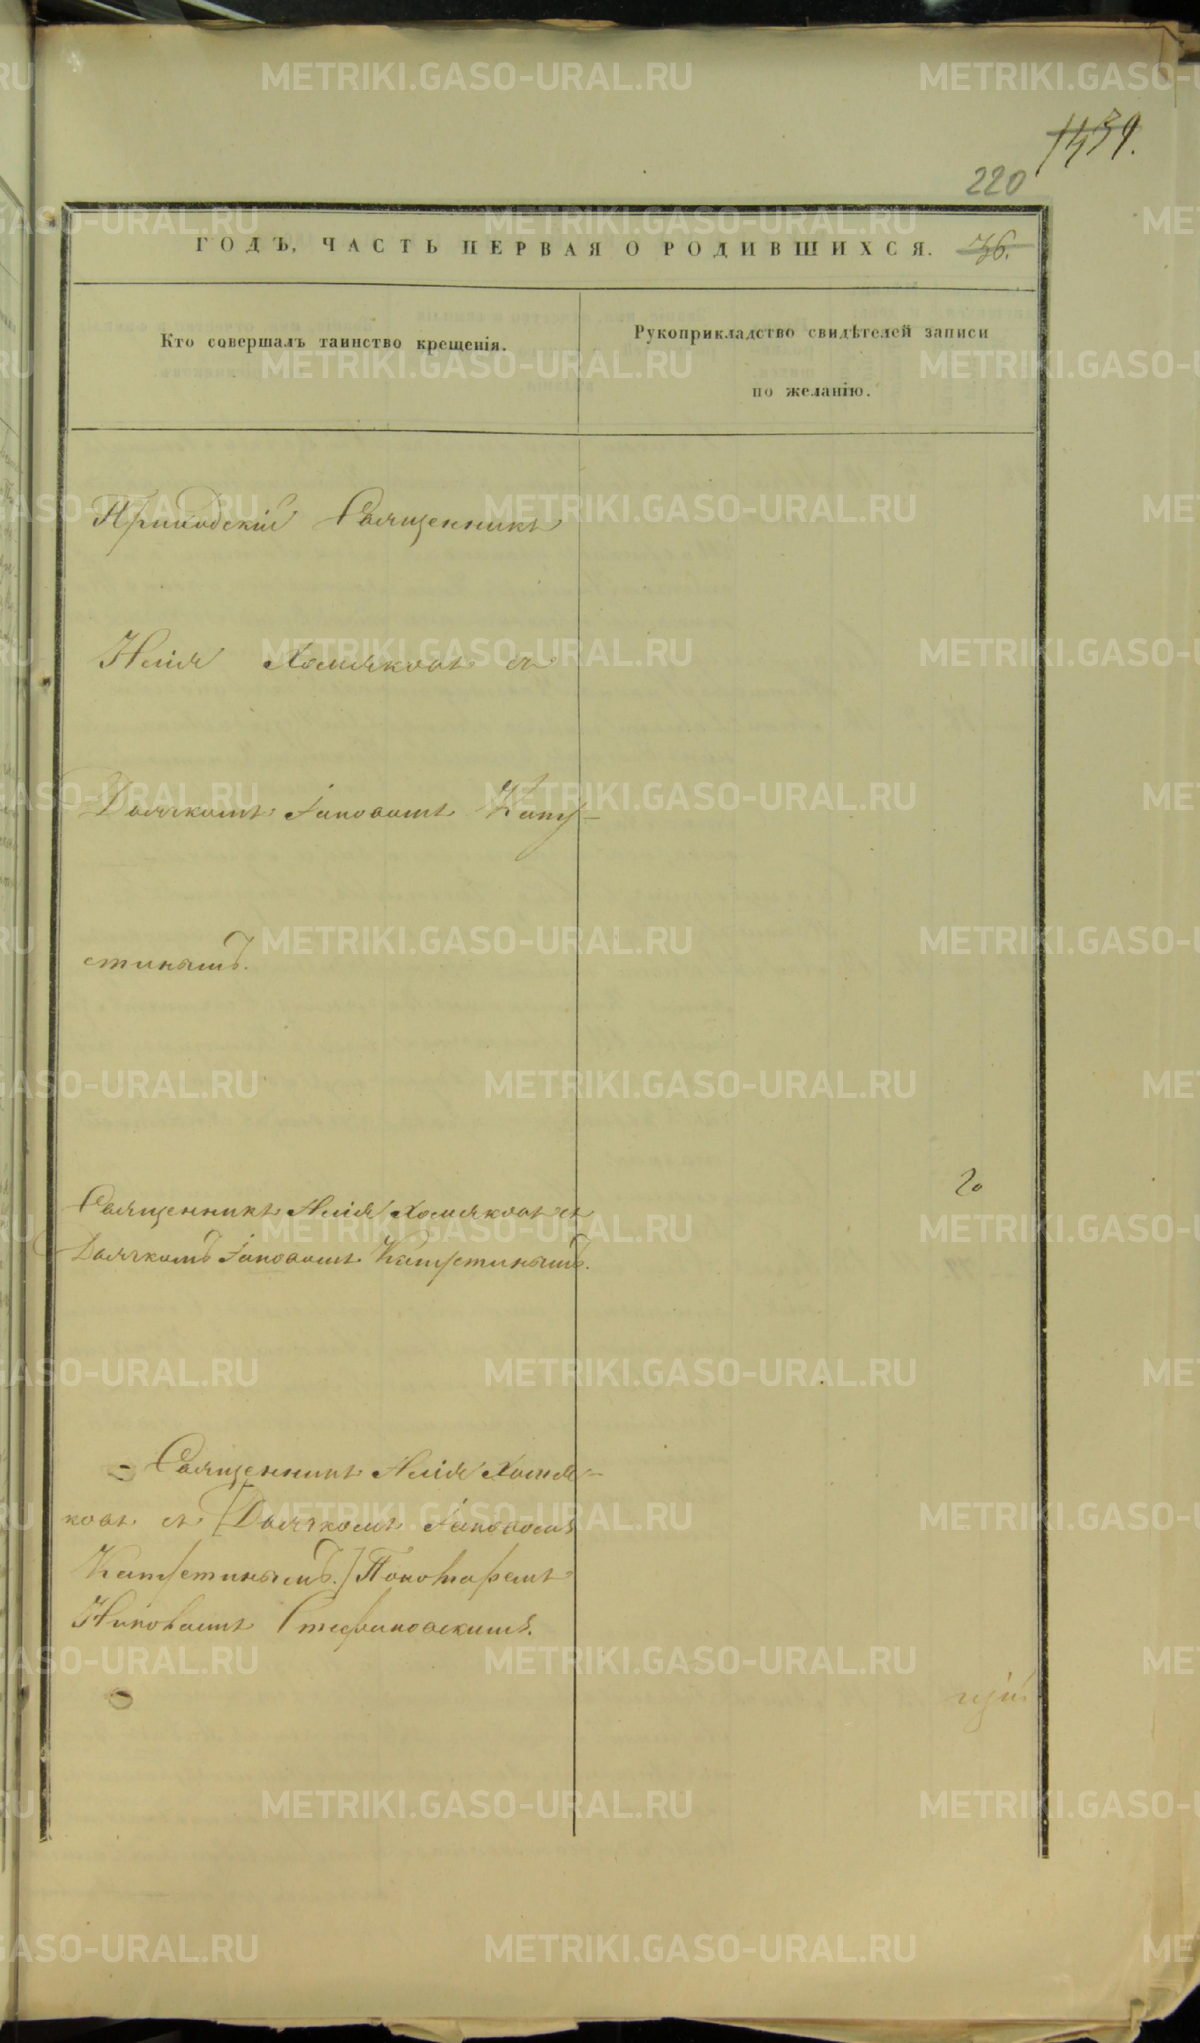 1439.
220
ГОДЪ, ЧАСТЬ ПЕРВАЯ О РОДИВШИХСЯ. 36.
Кто совершалъ таинство крещенія.
Рукоприкладство свидѣтелей записи
по желанію.
Приходскій Священникъ
Илія Хомяковъ съ
Дьячкомъ Іаковомъ Капу-
стинымъ.
Священникъ Илія Хомяковъ съ
Дьячкомъ Іаковомъ Капустинымъ.
Священникъ Илія Хомя-
ковъ съ [Дьячкомъ Іаковомъ
Капустинымъ.] Пономаремъ
Стефановскимъ.
METRIKI.GASO-URAL.RU